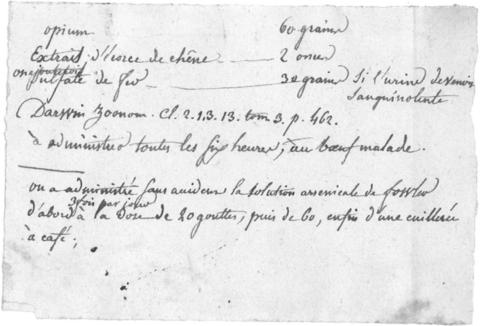 opium 60 grains
Extrait d'écorce de chêne — 2 onces
on ajouteroit
sulfate de fer — 30 grains si l'urine devenoit
sanguinolente
Darwin Zoonom. Cl. 2.1.3.13. tom 3. p. 462.
à administrer toutes les six heures, au bœuf malade.
on a administré sans accideur la solution arsenicale de fowler
3 fois par jour
d'abord à la dose de 20 gouttes, puis de 60, enfin d'une cuillerée
à café;